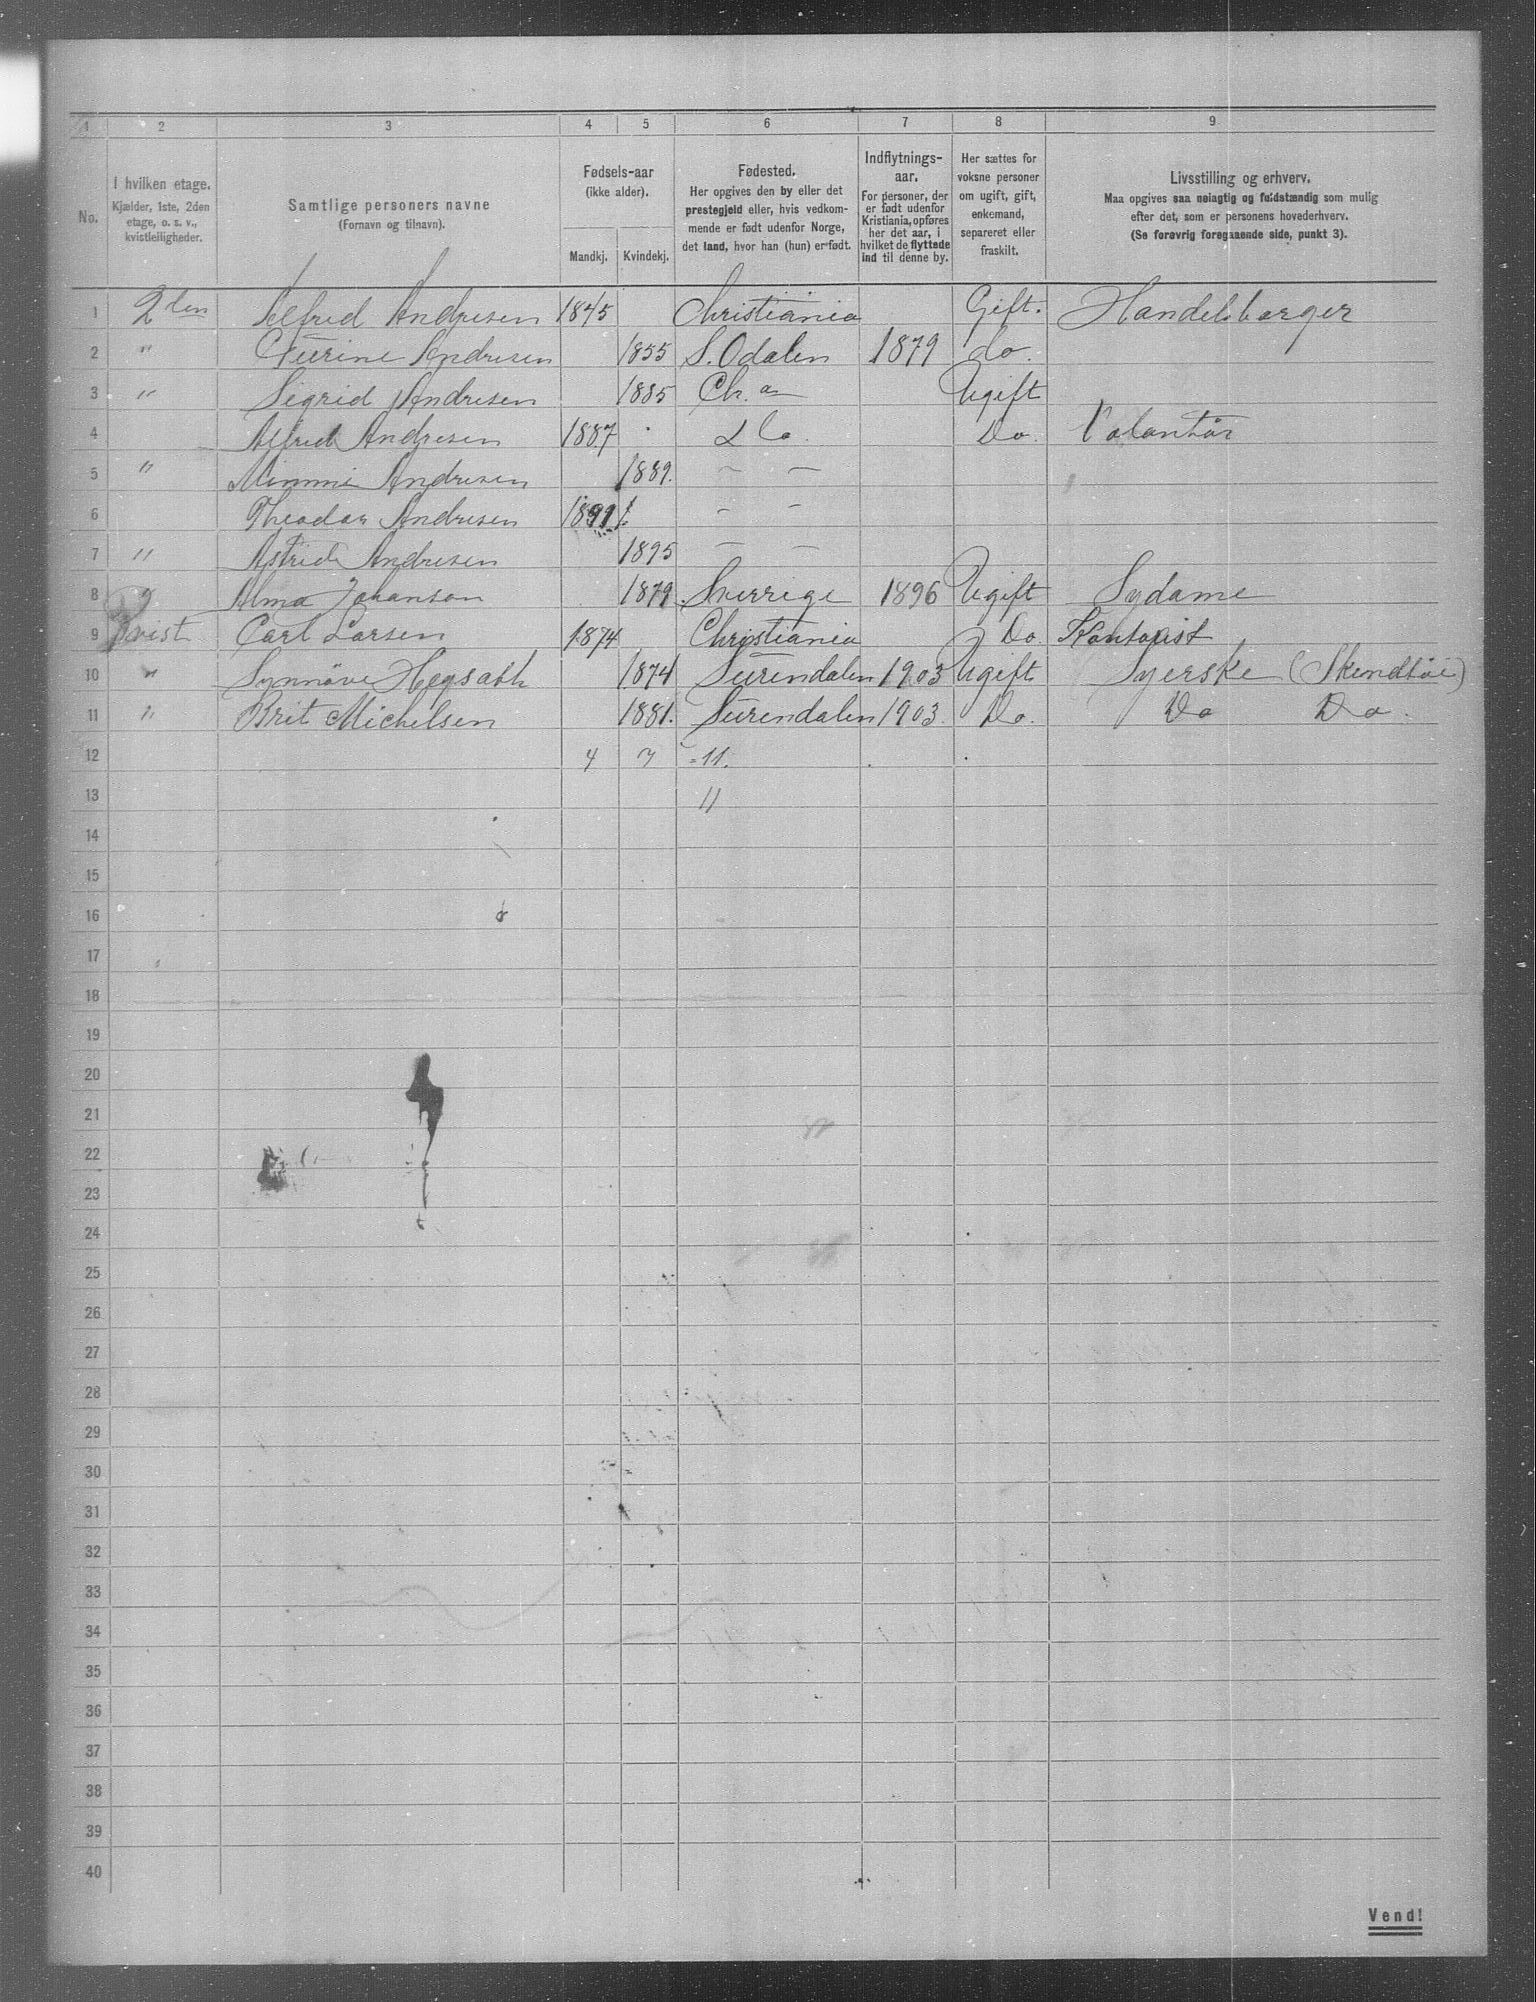 1 2 3 4 5 6 7 8 9
No.
I hvilken etage.
Kjælder, 1ste, 2den
etage, o. s. v.,
kvistleiligheder.
Samtlige personers navne
(Fornavn og tilnavn).
Fødsels-aar
(ikke alder).
Mandkj. Kvindekj.
Fødested.
Her opgives den by eller det
prestegjeld eller, hvis vedkom-
mende er født udenfor Norge,
det land, hvor han (hun) er født.
Indflytnings-
aar.
For personer, der
er født udenfor
Kristiania, opføres
her det aar, i
hvilket de flyttede
ind til denne by.
Her sættes for
voksne personer
om ugift, gift,
enkemand,
separeret eller
fraskilt.
Livsstilling og erhverv.
Maa opgives saa nøiagtig og fuldstændig som mulig
efter det, som er personens hovederhverv.
(Se forøvrig foregaaende side, punkt 3).
1 2den Alfred Andresen 1845 Christiania Gift. Handelsborger
2 " Andresen 1855 S. Odalen 1879 do.
3 " Sigrid Andresen 1885 Ch.a Ugift
4 Alfred Andresen 1887 Do. Do. Volontør
5 " Mimmi Andresen 1889. — —
6 Theodor Andresen 1891 — —
7 " Astrid Andresen 1895 — —
8 " Alma Johanson 1879 Sverrige 1896 Ugift Sydame
9 Kvist Carl Larsen 1874 Christiania Do. Kontorist
10 " Synnöve 1874 Surendalen 1903 Ugift Syerske (Skindtöi)
11 " Brit Michelsen 1881. Surendalen 1903. Do. Do Do.
12 4 7 = 11.
13 11
14
15
16
17
18
19
20
21
22
23
24
25
26
27
28
29
30
31
32
33
34
35
36
37
38
39
40
Vend!